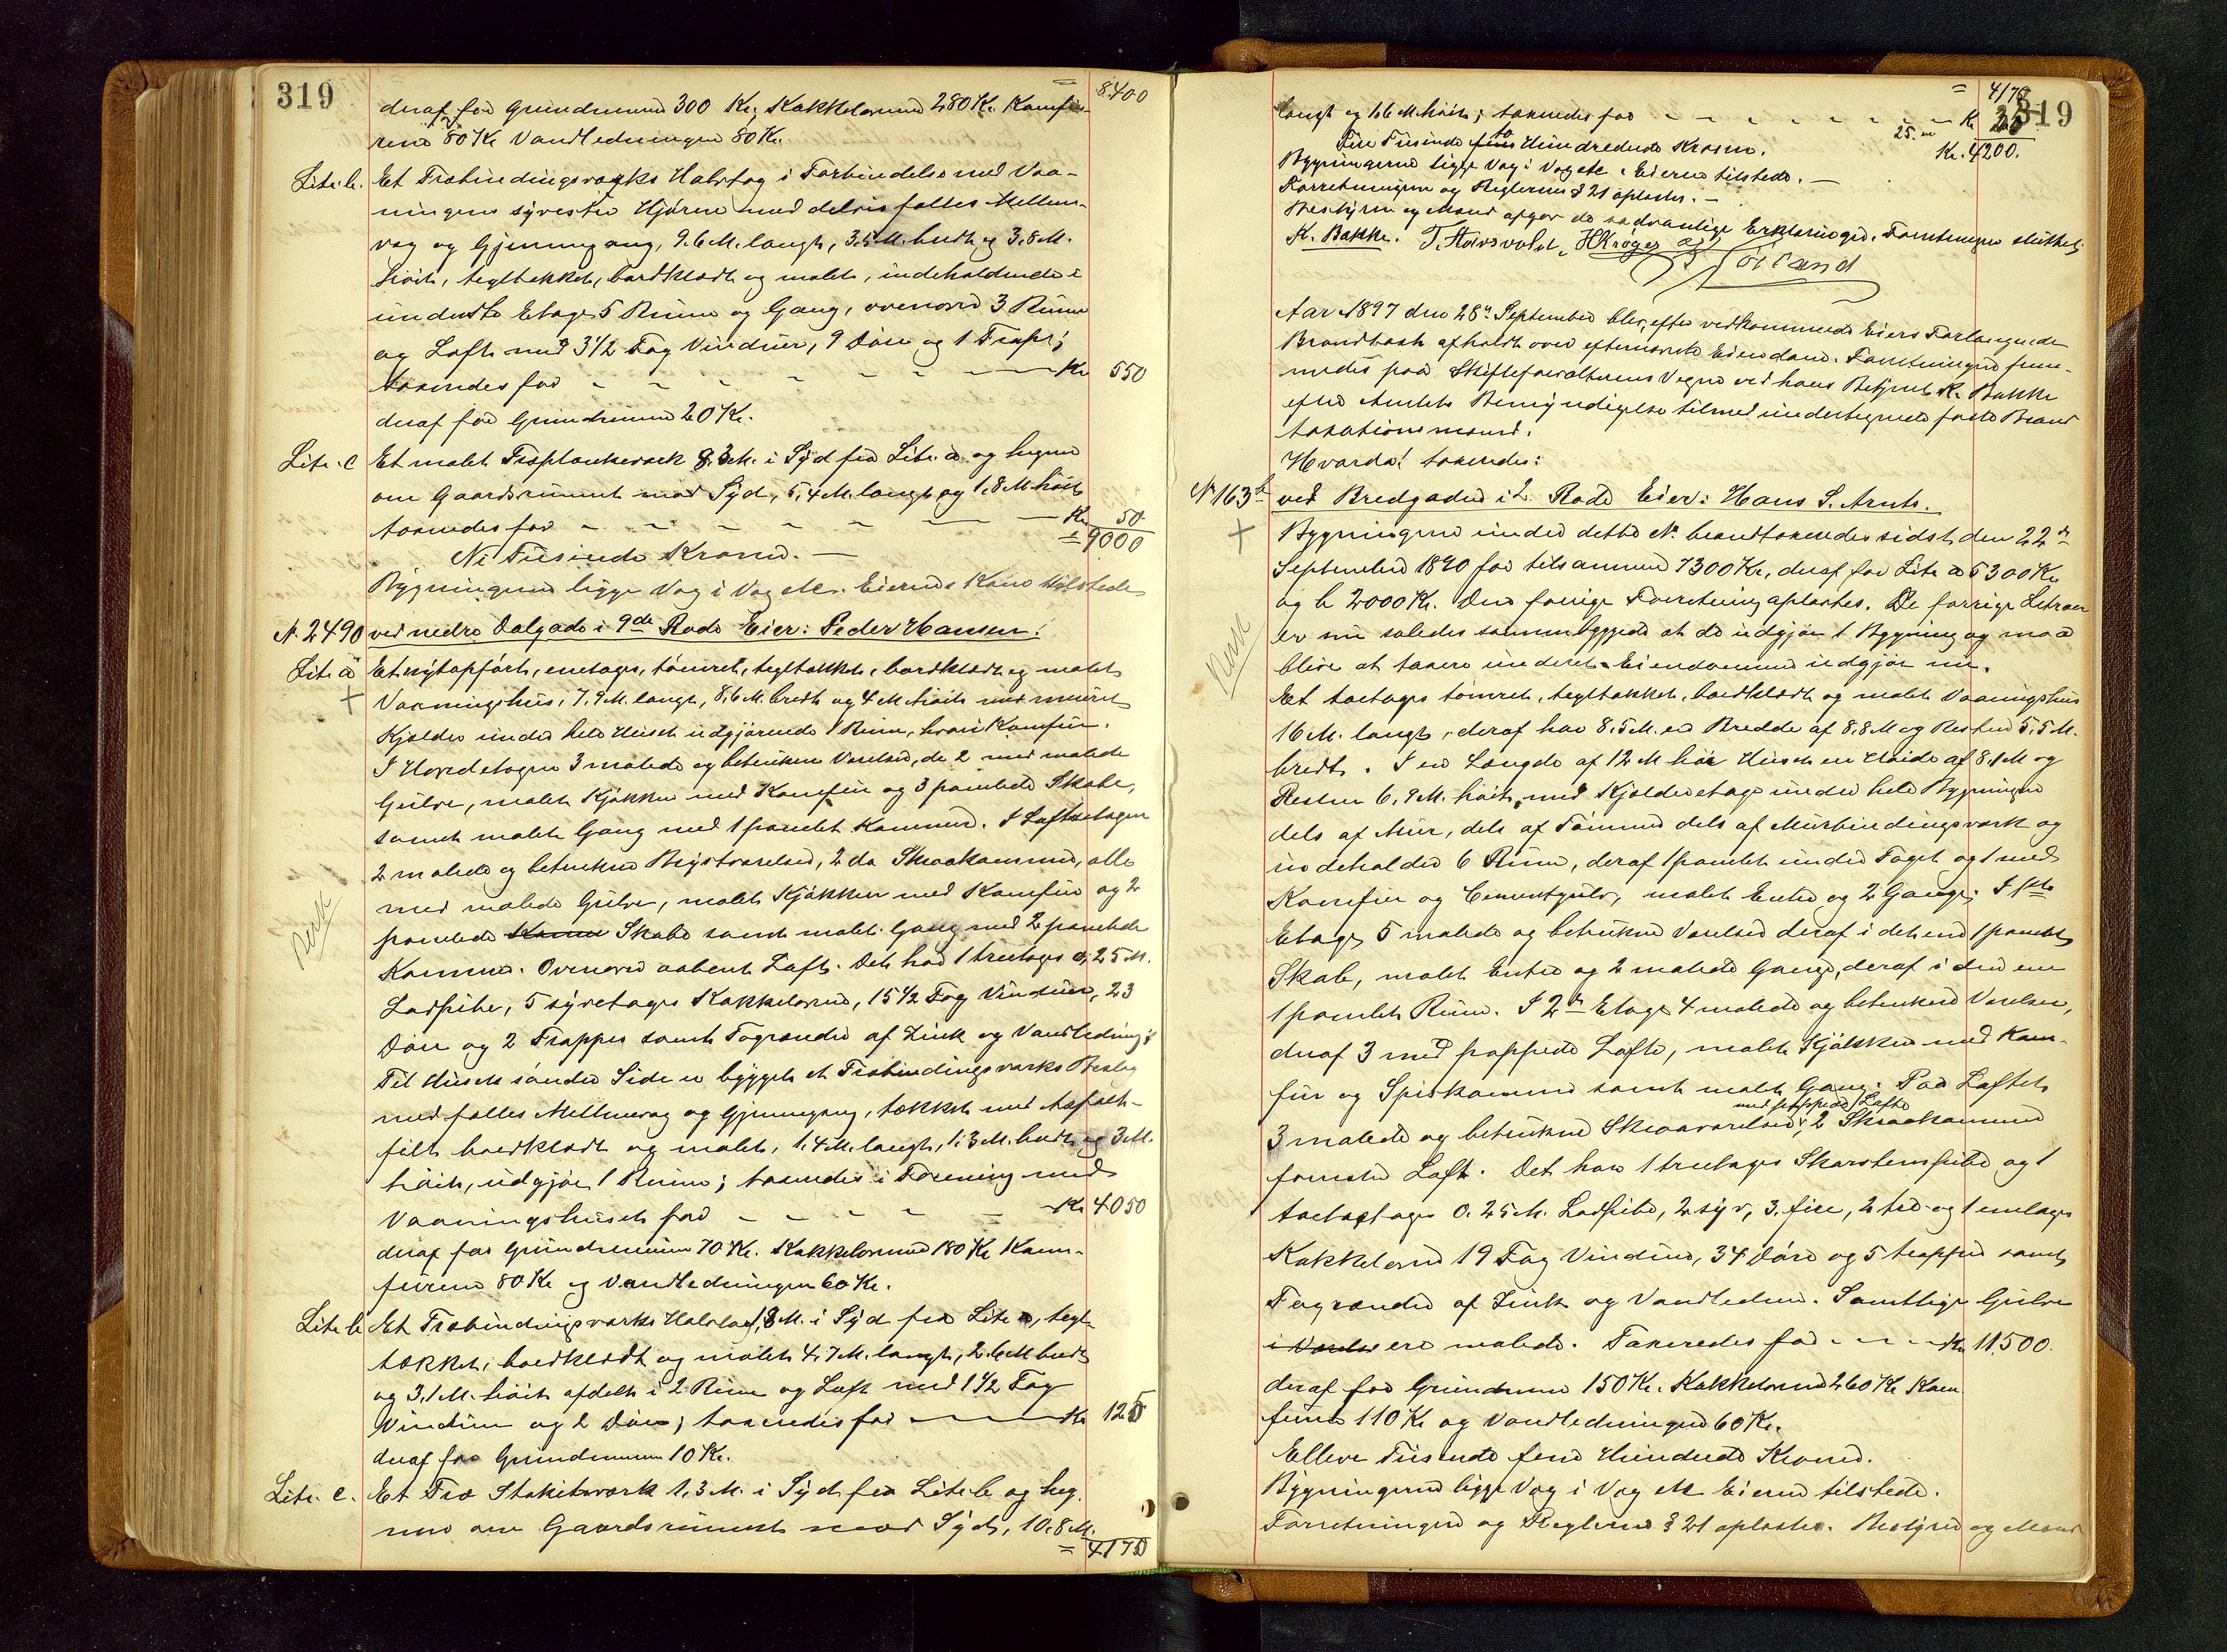 319
= 8.400
deraf for Grundmuren 300 Kr, Kakkelovnene 280 Kr. Komfu-
rene 80 Kr Vandledningen 80 Kr.
Litr. b. Et Træbindingsværks Halvtag i Forbindelse med Vaa-
ningens syvestre Hjørne med delvis fælles Mellem-
væg og Gjennemgang, 9.6 M. langt, 3.5 M. bredt og 3.8 M.
høit, tegltækket, bordklædt og malet, indeholdende i
underste Etage 5 Rum og Gang, ovenover 3 Rum
og Loft med 3 1/2 Fag Vinduer, 9 Døre og 1 Trappe;
taxeredes for - - - - - - - Kr 550
deraf for Grundmuren 20 Kr.
Litr. c Et malet Træplankeværk 8.3 M. i Syd fra Litr. a og hegner
om Gaardsrummet mod Syd, 5,4 M. langt og 1.8 M høit
taxeredes for - - - - - - - Kr 50
= 9000
Ni Tusinde Kroner. —
Bygningerne ligge Væg i Væg etc. Eierens Kone tilstede
N. 2490 ved nedre Dalgade i 9de Rode Eier: Peder Hansen:
Litr. a Et nyt opført, enetages, tømret, tegltækket, bordklædt og malet
+ Vaaningshus, 7.9 M. langt, 8,6 M. bredt og 4 M høit med muret
Kjælder under hele Huset udgjørende 1 Rum, hvori Komfur.
I Hovedetagen 3 malede og betrukne Værelser, de 2 med malede
Gulve, malet Kjøkken med Komfur og 3 panelede Skabe,
samt malet Gang med 1 panelet Kammer. I Loftsetagen
2 malede og betrukne Kvistværelser, 2 do Skraakammer, alle
med malede Gulve, malet Kjøkken med Komfur og 2
panelede Kamm Skabe samt malet Gang med 2 panelede
Kammer. Ovenover aabent Loft. Det har 1 treetages 0,25 M.
Ladpibe, 5 syvetages Kakkelovne, 15 1/2 Fag Vinduer, 23
Døre og 2 Trapper samt Tagrender af Zink og Vandledning;
Til Husets søndre Side er bygget et Træbindingsværks Beslag
med fælles Mellemvæg og Gjennemgang, tækket med Asfalt-
filt bordklædt og malet, 1.4 M. langt, 1.3 M. bredt og 3 M.
høit, udgjør 1 Rum; taxeredes i Forening med
Vaaningshuset for - - - - - Kr 4050
deraf for Grundmuren 70 Kr. Kakkelovnene 180 Kr Kom-
furene 80 Kr og Vandledningen 60 Kr.
Litr b Et Træbindingsværks Halvtag 1,8 M. i Syd fra Litr a, tegl-
tækket, bordklædt og malet 4,7 M. langt, 2.6 M bredt
og 3,1 M. høit afdelt i 2 Rum og Loft med 1 1/2 Fag
Vinduer og 2 Døre; taxeredes for - - - Kr 125
deraf for Grundmuren 10 Kr.
Litr. c. Et Træ Stakitværk 1,3 M. i Syd fra Litr. b og heg-
ner om Gaardsrummet mod Syd, 10.8 M.
= 4175
319
= 4175
langt og 1.6 M. høit; taxeredes for - - - - - - - Kr 25
25. Kr. 4200.
Fire Tusinde fem to Hundrede Kroner.
Bygningerne ligge Væg i Væg etc. Eieren tilstede. —
Forretningen og Reglernes § 21 oplæstes. —
Bestyrer og Mænd afgav de sædvanlige Erklæringer. Forretningen sluttet.
K. Bakke. T. Harsvolst. H Krøger
Aar 1897 den 28de September blev efter vedkommende Eiers Forlangende
Brandtaxt afholdt over efternævnte Eiendom. Forretningen frem-
medes paa Skifteforvalterens Vegne ved hans Betjent K. Bakke
efter Amtets Bemyndigelse tilmed undertegnede faste Brand
taxationsmænd.
Hvorda! taxeredes:
N 163 b ved Bredgaden i 2 Rode Eier: Hans S. Arnts.
+ Bygningerne under dette No. brandtaxeredes sidst den 22de
September 1890 for tilsammen 7300 Kr, deraf for Litr a 5300 Kr
og b 2000 Kr. Den forrige Forretning oplæstes. De forrige Letraer
er nu saledes sammenbyggede at de udgjør 1 Bygning og maa
blive at taxere under et. Eiendommen udgjør nu.
Et toetages tømret, tegltækket, bordklædt og malet Vaaningshus
16 M. langt, deraf har 8,5 M. en Bredde af 8,8 M og Resten 5,5 M.
bredt. I en Længde af 12 M har Huset en Høide af 8,1 M og
Resten 6,9 M. høit, med Kjælderetage under hele Bygningen
dels af Mur, dels af Tømmer dels af Murbindingsværk og
indeholder 6 Rum, deraf 1 panelet under Taget og 1 med
Komfur og Cementgulv, malet Entre og 2 Gange. I 1ste
Etage 5 malede og betrukne Værelser deraf i det ene 1 panelet
Skab, malet Entre og 2 malede Gange, deraf i den ene
1 panelet Rum. I 2den Etage 4 malede og betrukne Værelser,
deraf 3 med pappede Lofte, malet Kjøkken med Kom-
fur og Spiskammer samt malet Gang. Paa Loftet
med pappede Lofte
3 malede og betrukne Skraaværelser, 2 Skraakammer
foruden Loft. Det har 1 treetages Skorstenspibe og 1
toetages 0.25 M. Ladpibe, 2 syv, 3. fire, 2 tre og 1 enetages
Kakkelovne 19 Fag Vinduer, 34 Døre og 5 trapper samt
Tagrender af Zink og Vandledn. Samtlige Gulve
i Værelser ere malede. Taxeredes for - - - Kr 11.500.
deraf for Grundmuren 150 Kr. Kakkelovnene 260 Kr Kom
furene 110 Kr og Vandledningen 60 Kr.
Elleve Tusinde fem Hundrede Kroner.
Bygningerne ligge Væg i Væg etc Eieren tilstede.
Forretningen og Reglernes § 21 oplæstes. Bestyrer og Mænd